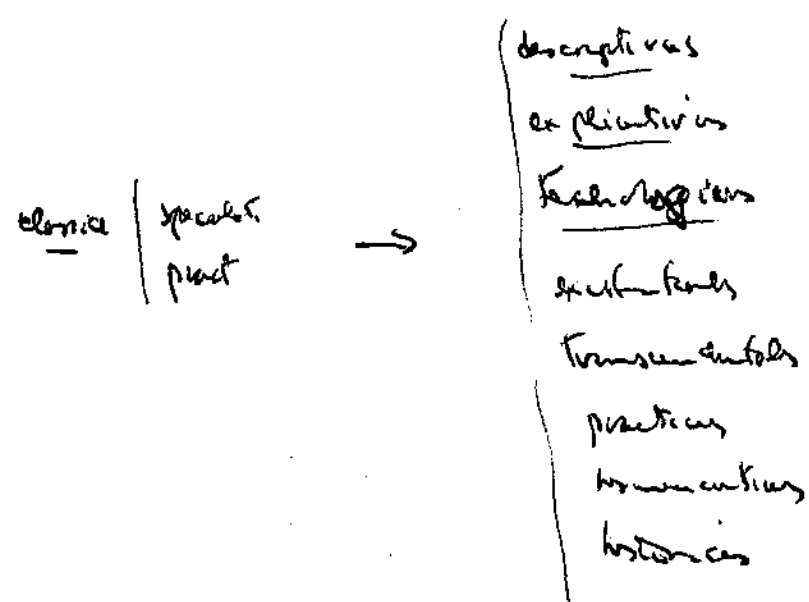 clasica
speculat.
pract
→
descriptivas
explicativas
technologicas
existentales
transcendentales
practicas
hermeneuticas
historicas